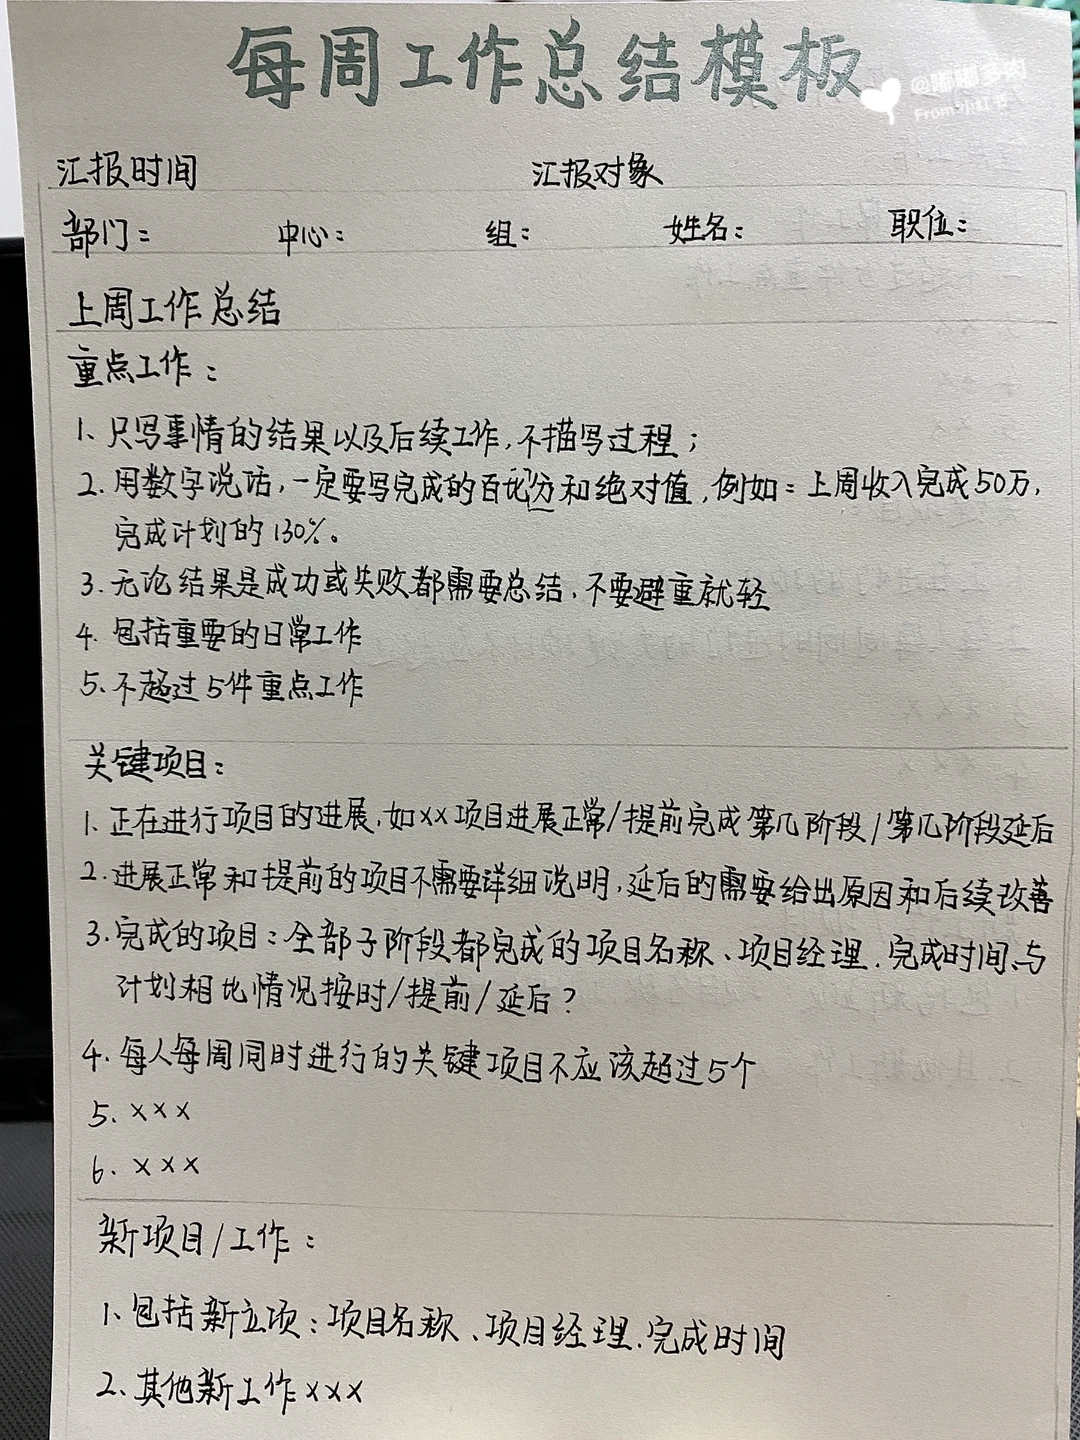 每周工作总结模板
@嘟嘟多肉
From小红书
汇报时间 汇报对象
部门： 中心： 组： 姓名： 职位：
上周工作总结
重点工作：
1、只写事情的结果以及后续工作，不描写过程；
2. 用数字说话，一定要写完成的百分比和绝对值，例如：上周收入完成50万，
完成计划的130%。
3. 无论结果是成功或失败都需要总结，不要避重就轻
4. 包括重要的日常工作
5. 不超过5件重点工作
关键项目：
1. 正在进行项目的进展，如xx项目进展正常/提前完成第几阶段/第几阶段延后
2. 进展正常和提前的项目不需要详细说明，延后的需要给出原因和后续改善
3. 完成的项目：全部子阶段都完成的项目名称、项目经理、完成时间、与
计划相比情况按时/提前/延后？
4. 每人每周同时进行的关键项目不应该超过5个
5. xxx
6. xxx
新项目/工作：
1、包括新立项：项目名称、项目经理、完成时间
2、其他新工作xxx